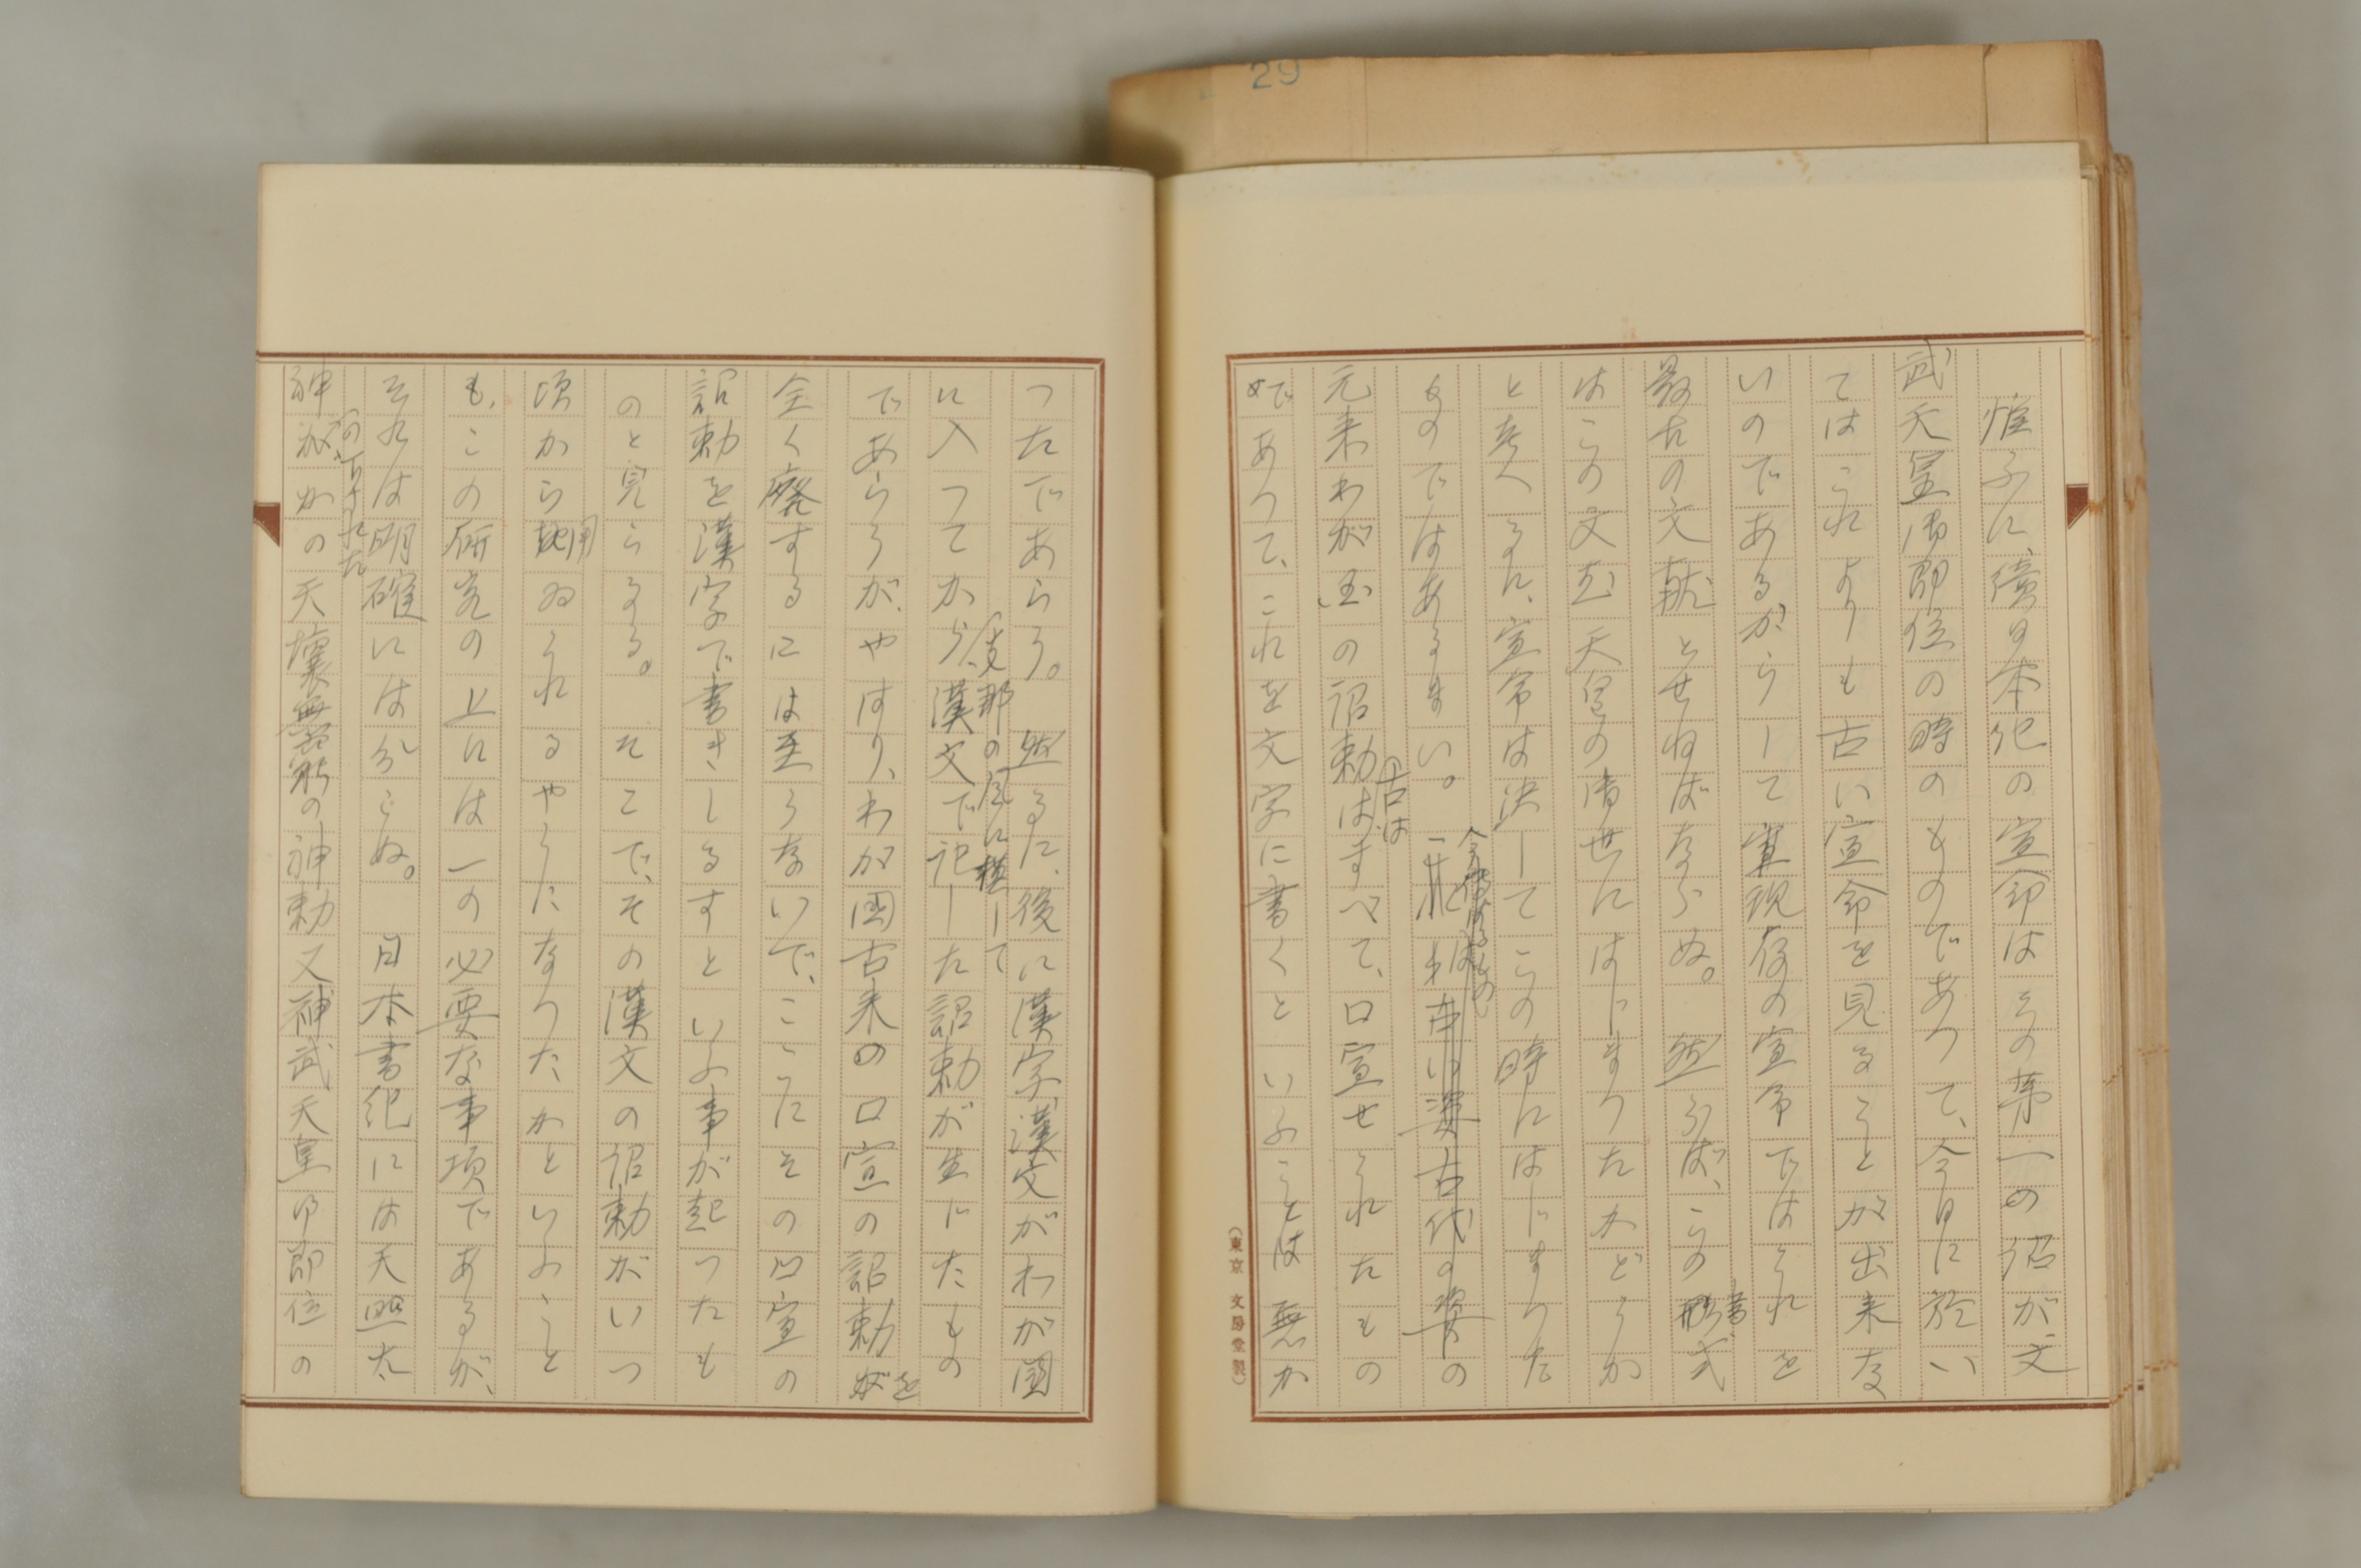 29
惟ふに、續日本紀の宣命はその第一の詔が文
武天皇御即位の時のものであつて、今日に於い
てはこれよりも古い宣命を見ることが出来な
いのであるからして實現存の宣命ではこれを
最古の文献とせねばならぬ。然らば、この書式
はこの文武天皇の御世にはじまつたかどうか
と考へるに、宣命は決してこの時にはじまつた
ものではあるまい。古代の姿の
元来わが国の詔勅は古はすべて、口宣せられたもの
であつて、これを文字に書くといふことは無か
(東京 文房堂製)
つたであらう。然るに、後に漢字、漢文がわが國
に入つてから、支那の風に模して漢文で記した詔勅が生じたもの
であらうが、やはり、わが國古来の口宣の詔勅を
全く廃するには至らないで、こゝにその口宣の
詔勅を漢字で書きしるすといふ事が起つたも
のと見らるる。そこで、その漢文の詔勅がいつ
頃から用ゐられるやうになつたかといふこと
も、この研究の上には一の必要な事項であるが、
それは明確には分らぬ。日本書紀には天照大
神の下された天壤無窮の神勅又神武天皇御即位の